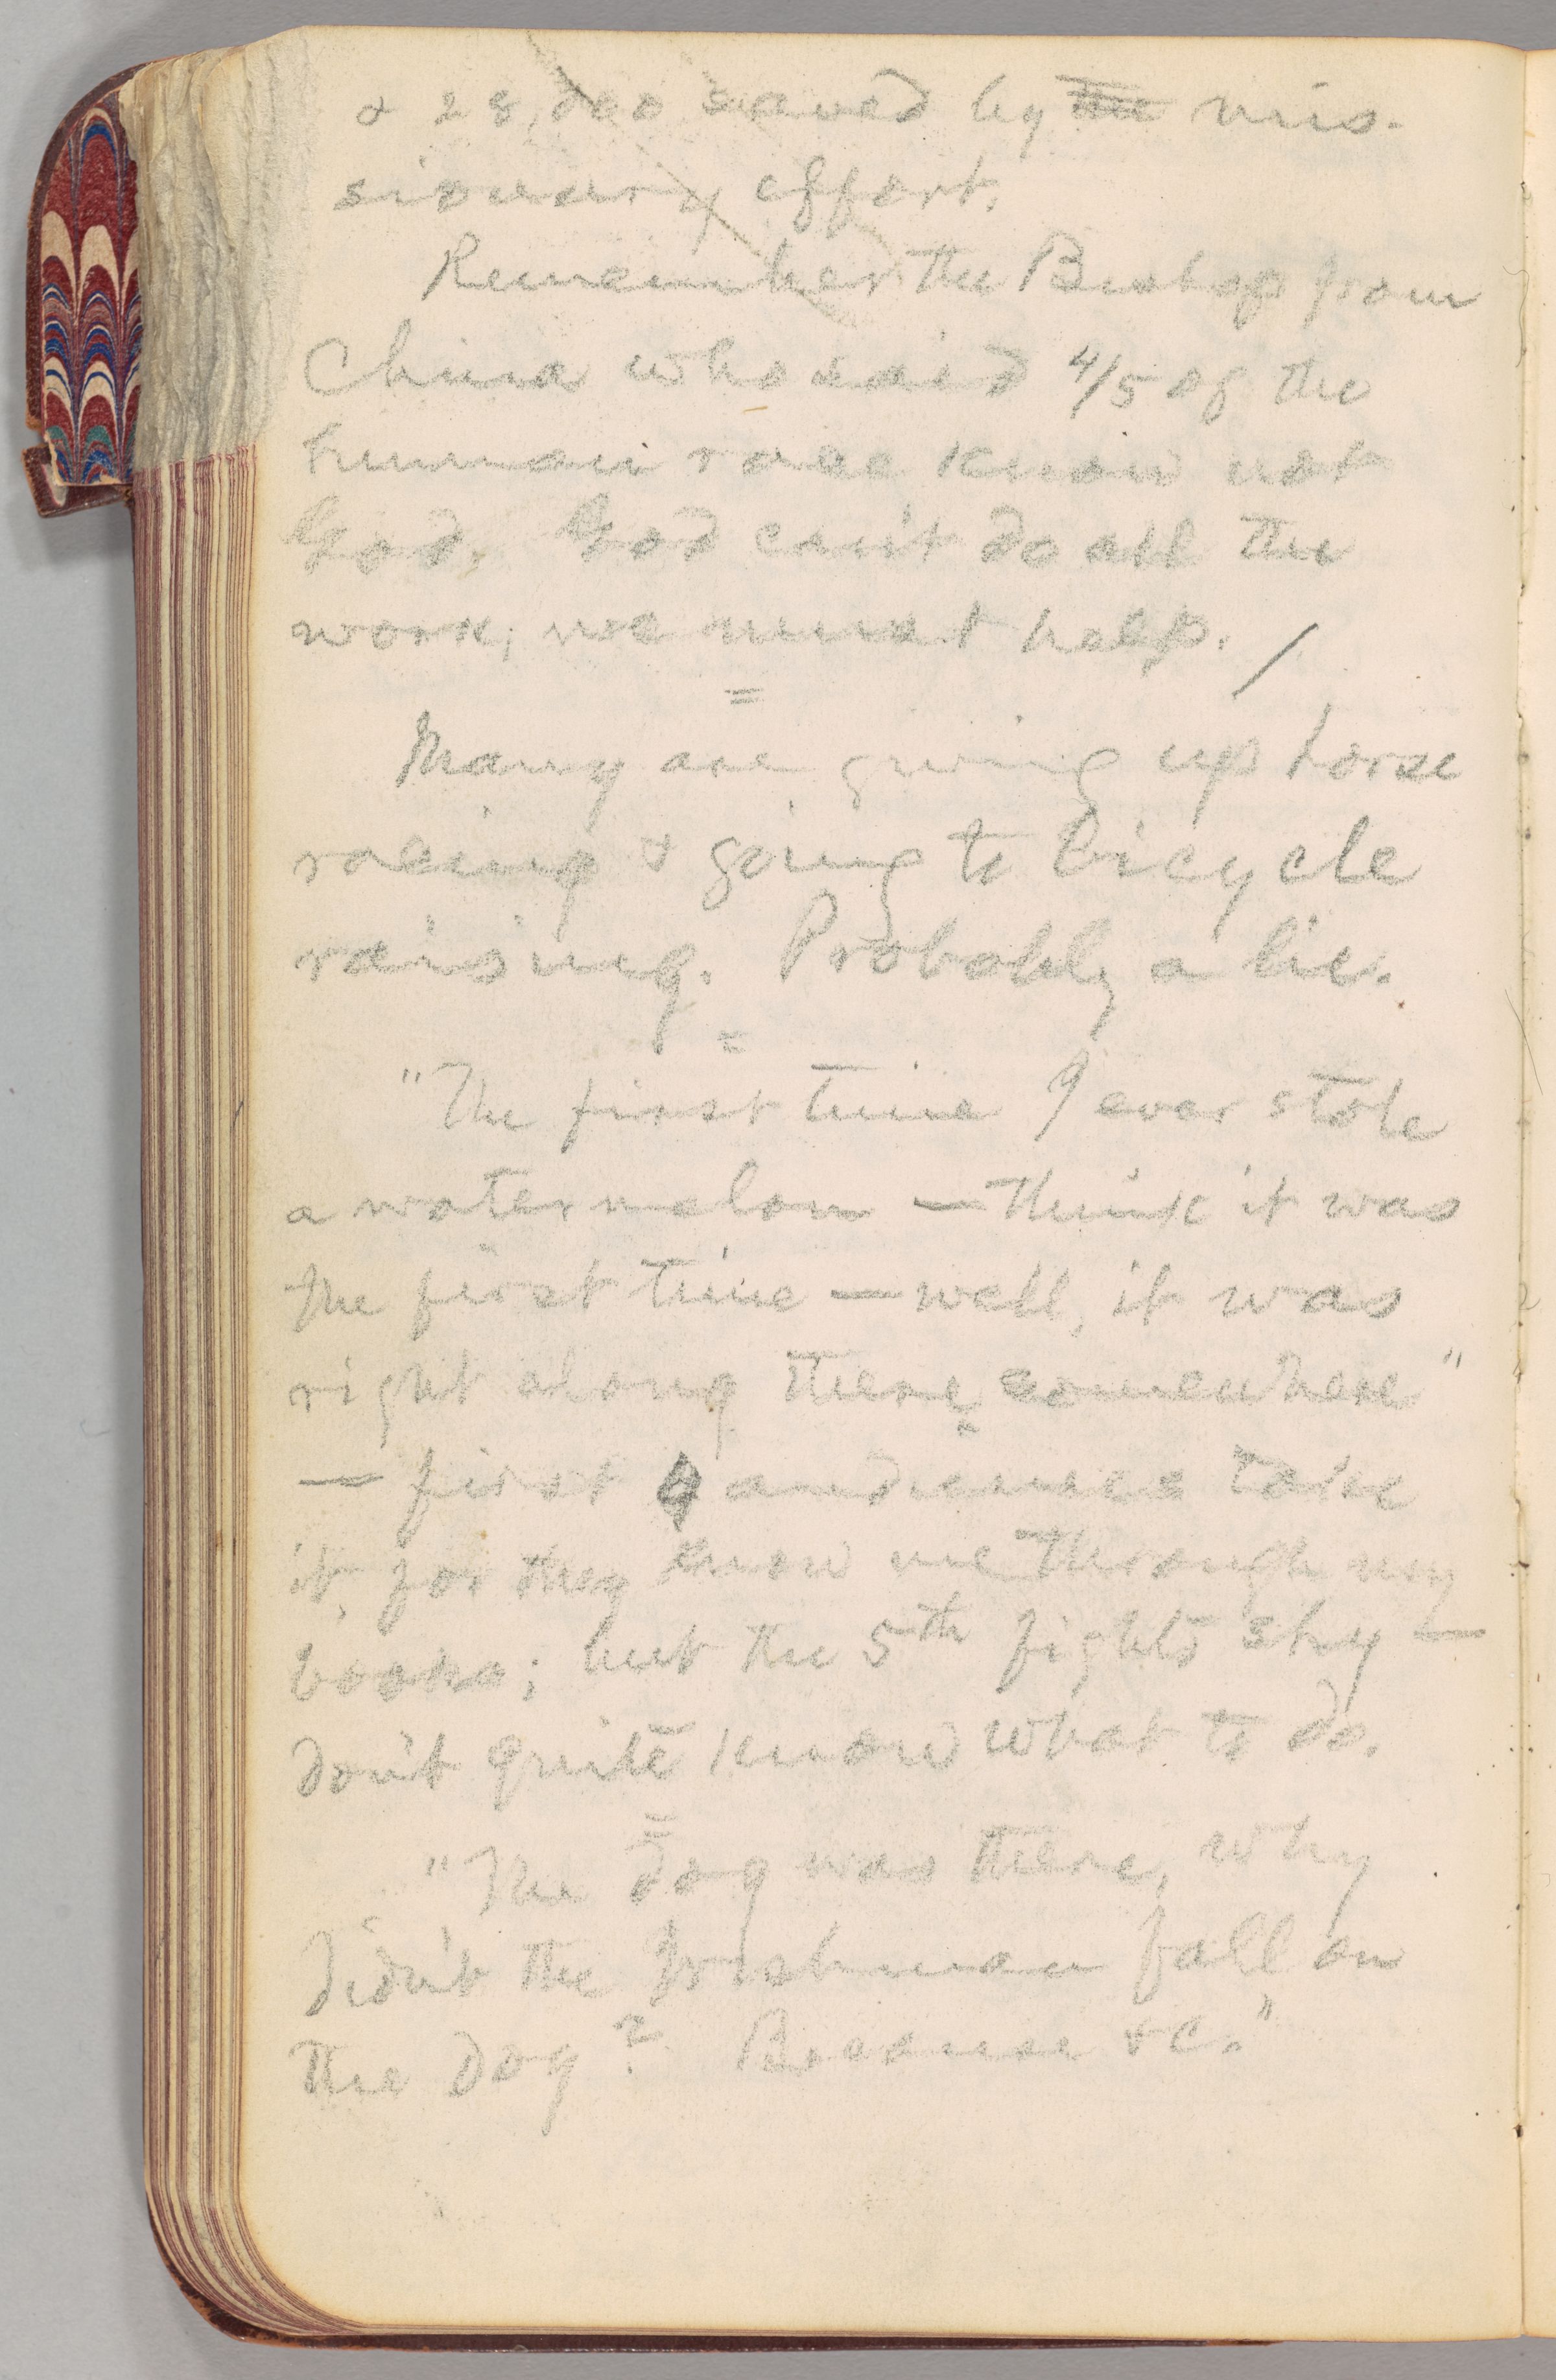 & 28,000 saved by the mis-
sionary effort.
Remember the Bishop from
China who said 4/5 of the
human race know not
God. God can't do all the
work; we must help. /
=
Many are giving up horse
racing & going to bicycle
raising. Probably a lie.
=
"The first time I ever stole
a watermelon — think it was
the first time — well, it was
right along there somewhere"
— first 4 audiences take
it, for they know me through my
books; but the 5th fights shy —
don't quite know what to do.
=
"The dog was there, why
didn't the Irishman fall on
the dog? Because &c."